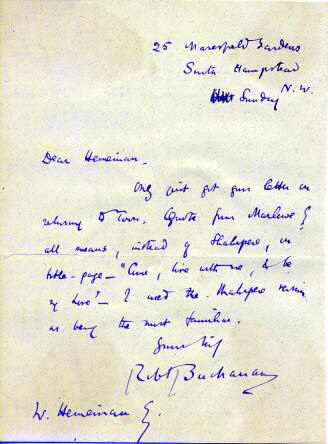 25 Maresfield Gardens
South Hampstead
N.W.
Sunday
Dear Heineman.
Only just got your letter on
returning to Town. Quote from Marlowe by
all means, instead of Shakspere, on
title-page — "Come, live with me, & be
my Love" — I used the Shakspere version
as being the most familiar.
Yours truly
Robt Buchanan
W. Heineman Esq.